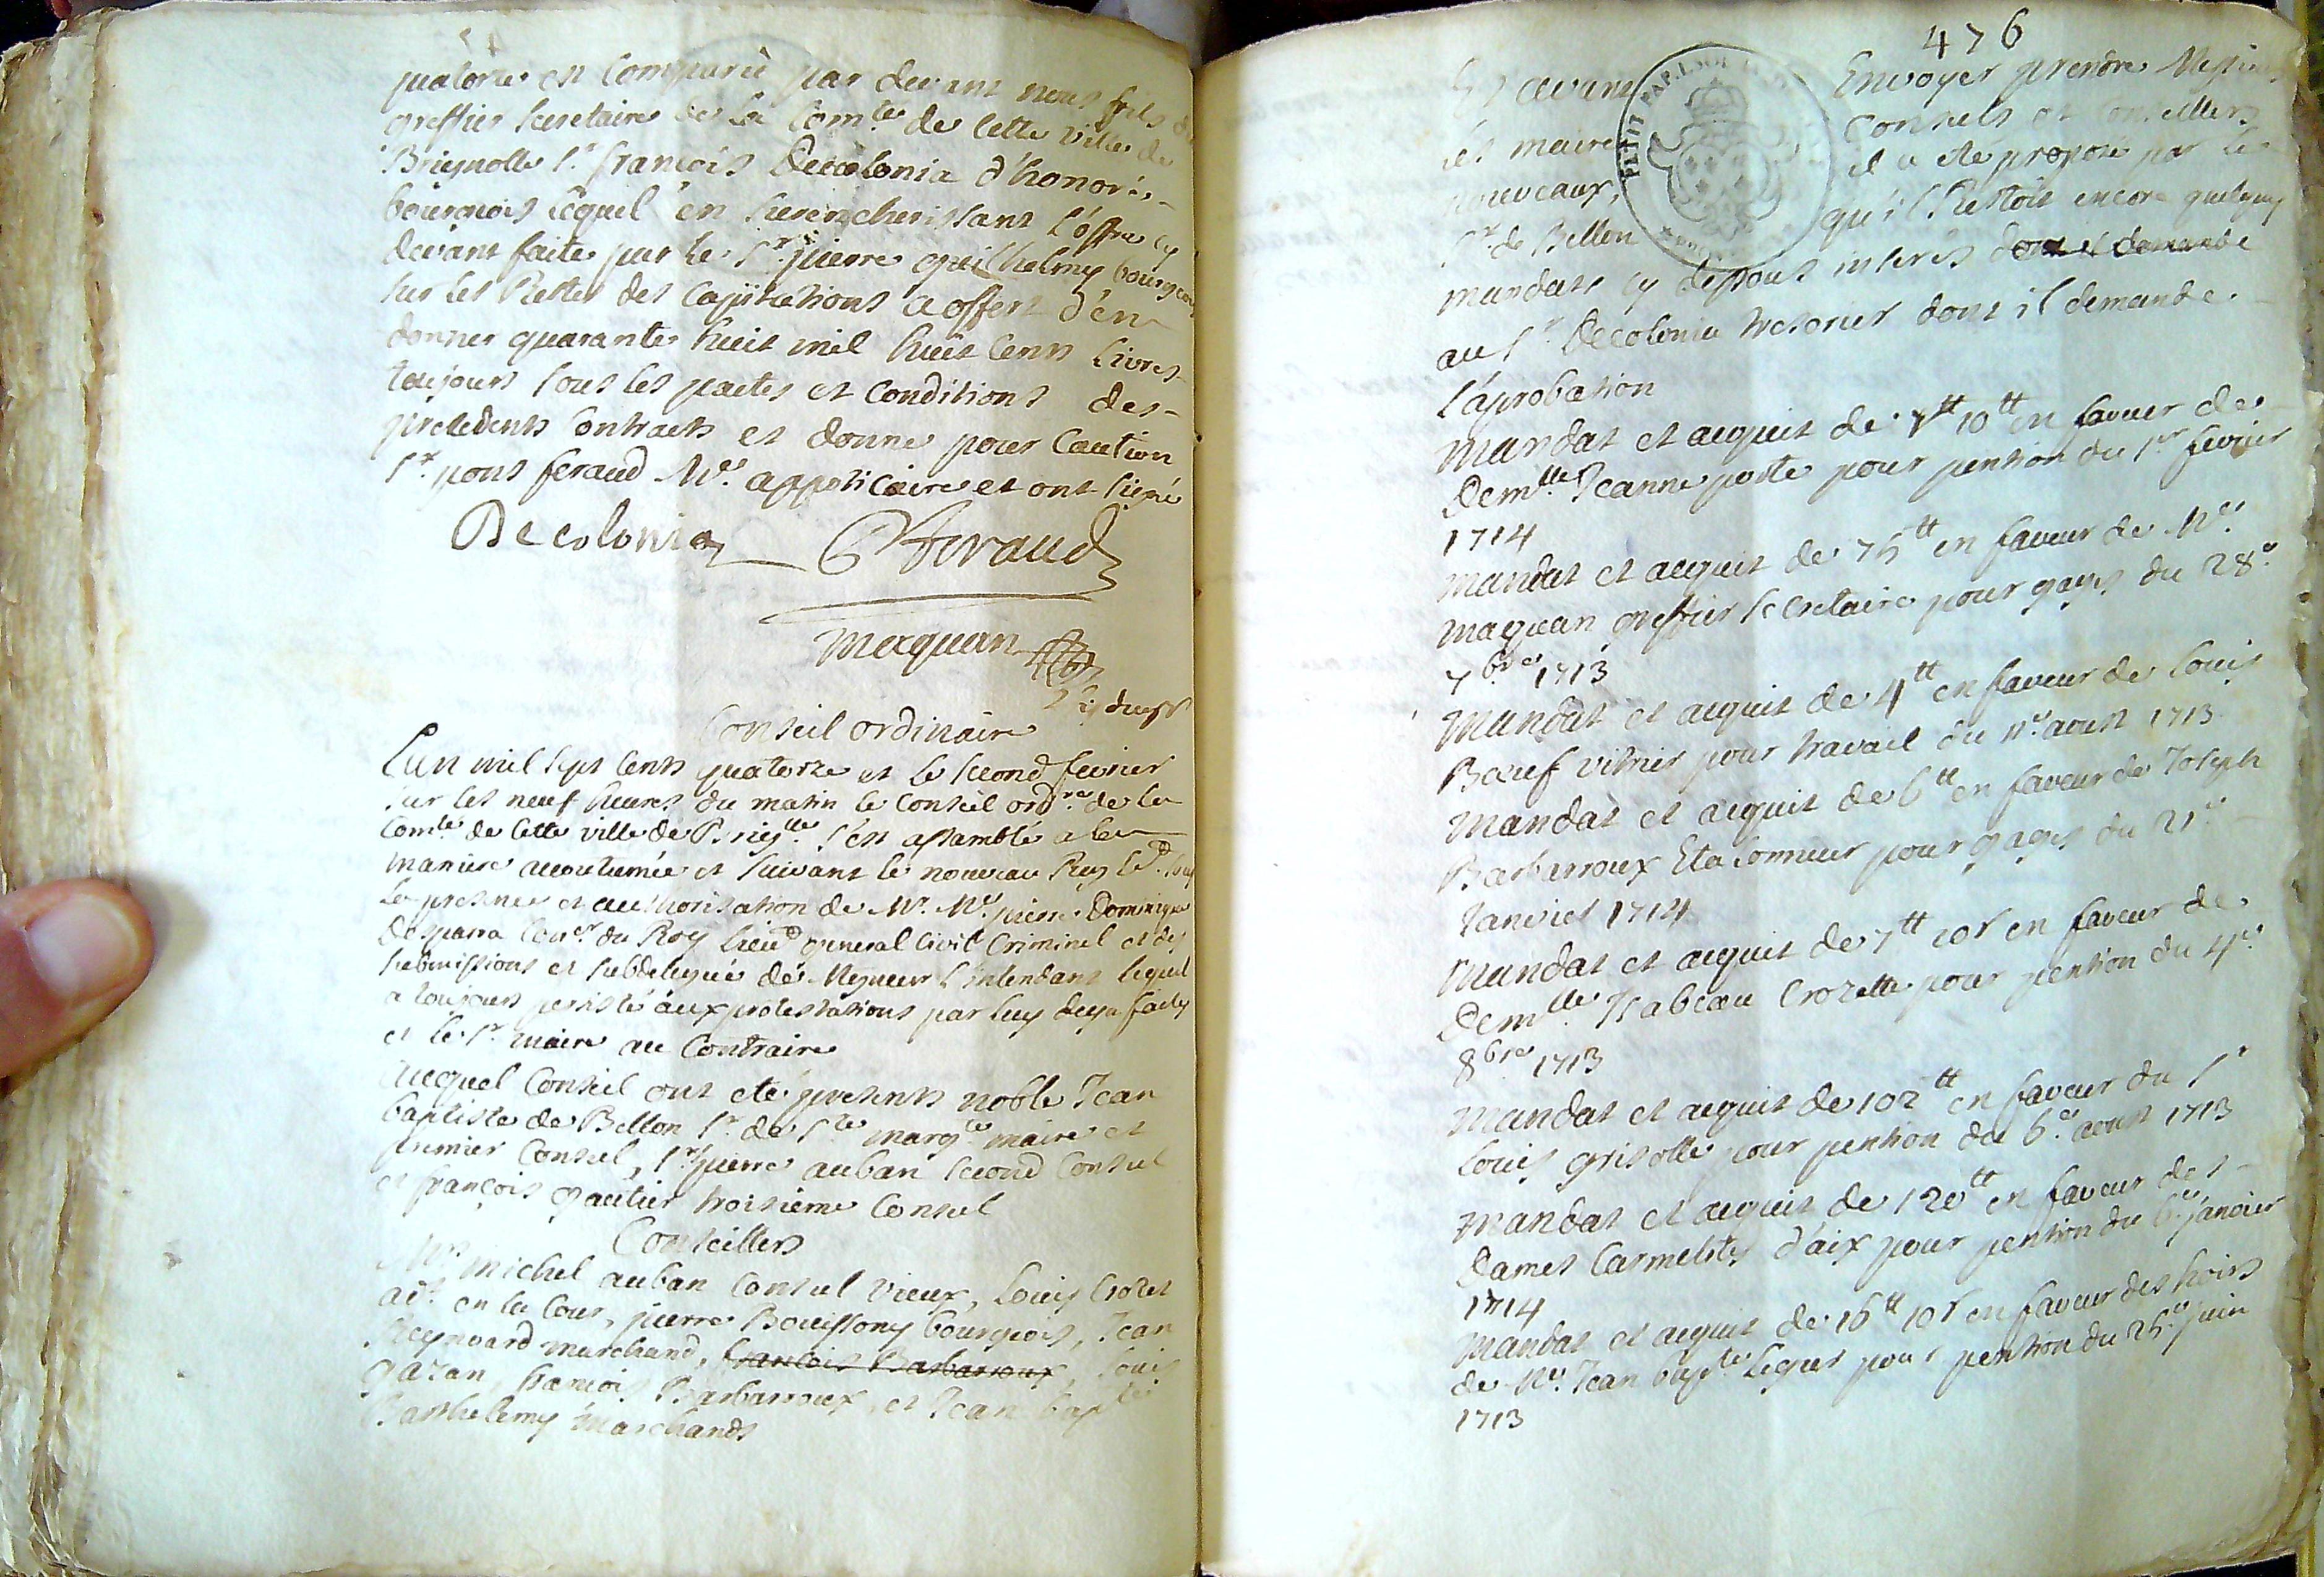 quatorze est Comparu par devant nous fils
greffier secretaire de la Com.te de Cette Ville de
Brignolle s.r francois Decolonia d'honoré
bourgeois lequel en surencherissant l'offre cy
devant faite par le s.r pierre guilhelmy bourgeois
sur les Restes des Capitations a offert d'en
donner quarante huit mil huit Cens Livres
toujours sous les pactes et Conditions des
precedents Contracts et donne pour Caution
s.r pons feraud M.e appoticaire et ont signé
Decolonia P feraud
Maquan
Conseil ordinaire
L'an mil sept Cents quatorze et le second fevrier
sur les neuf heures du matin le Conseil ord.re de la
Com.te de Cette ville de Brig.lle s'est assamblé a la
maniere accoutumée et suivant le nouveau Reg.le.t sous
la presence et authorisation de M.r M.e pierre Dominique
Desparra Con.er du Roy Lieu.t general Civil Criminel et des
submissions et subdelegué de Mgneur L'intendant lequel
a toujours persisté aux protestations par luy deja faites
et le s.r maire au Contraire
Auquel Conseil ont eté presents noble Jean
baptiste de Bellon s.r de s.te marg.te maire et
premier Consul, s.r pierre auban second Consul
et françois gautier troisieme Consul
Conseillers
M.rs michel auban Consul vieux, Louis Crozet
ad.t en la Cour, pierre Bouissony bourgeois, Jean
Reynoard marchand, francois Barbarroux, Louis
gazan, francois Barbarroux, et Jean bap.te
Barthelemy marchands
476
Et avant Envoyer prendre Messieurs
les maire Consuls et Conseillers
nouveaux, il a eté proposé par le
s.r de Bellon qu'il Restoit encore quelques
mandats cy dessous inserés dont il demande
au s.r Decolonia tresorier dont il demande
l'aprobation
Mandat et acquit de 7tt 10tt en faveur de
Dem.lle Jeanne poste pour pention du 1.er fevrier
1714
Mandat et acquit de 75tt en faveur de M.e
Maquan greffier secretaire pour gages du 28.e
7bre 1713
Mandat et acquit de 4tt en faveur de Louis
Bœuf vitrier pour travail du 11.e aoust 1713
Mandat et acquit de 6tt en faveur de Joseph
Barbarroux Etalonneur pour gages du 21.e
Janvier 1714
Mandat et acquit de 7tt 10s en faveur de
Dem.lle Isabeau Crozette pour pention du 4.e
8bre 1713
Mandat et acquit de 102tt en faveur du s.r
Louis grisolle pour pention du 6.e aoust 1713
Mandat et acquit de 120tt en faveur des
Dames Carmelites d'aix pour pention du 6.e janvier
1714
Mandat et acquit de 16tt 10s en faveur des hoirs
de M.e Jean bap.te Leguer pour pention du 25.e juin
1713
PETIT PAP.